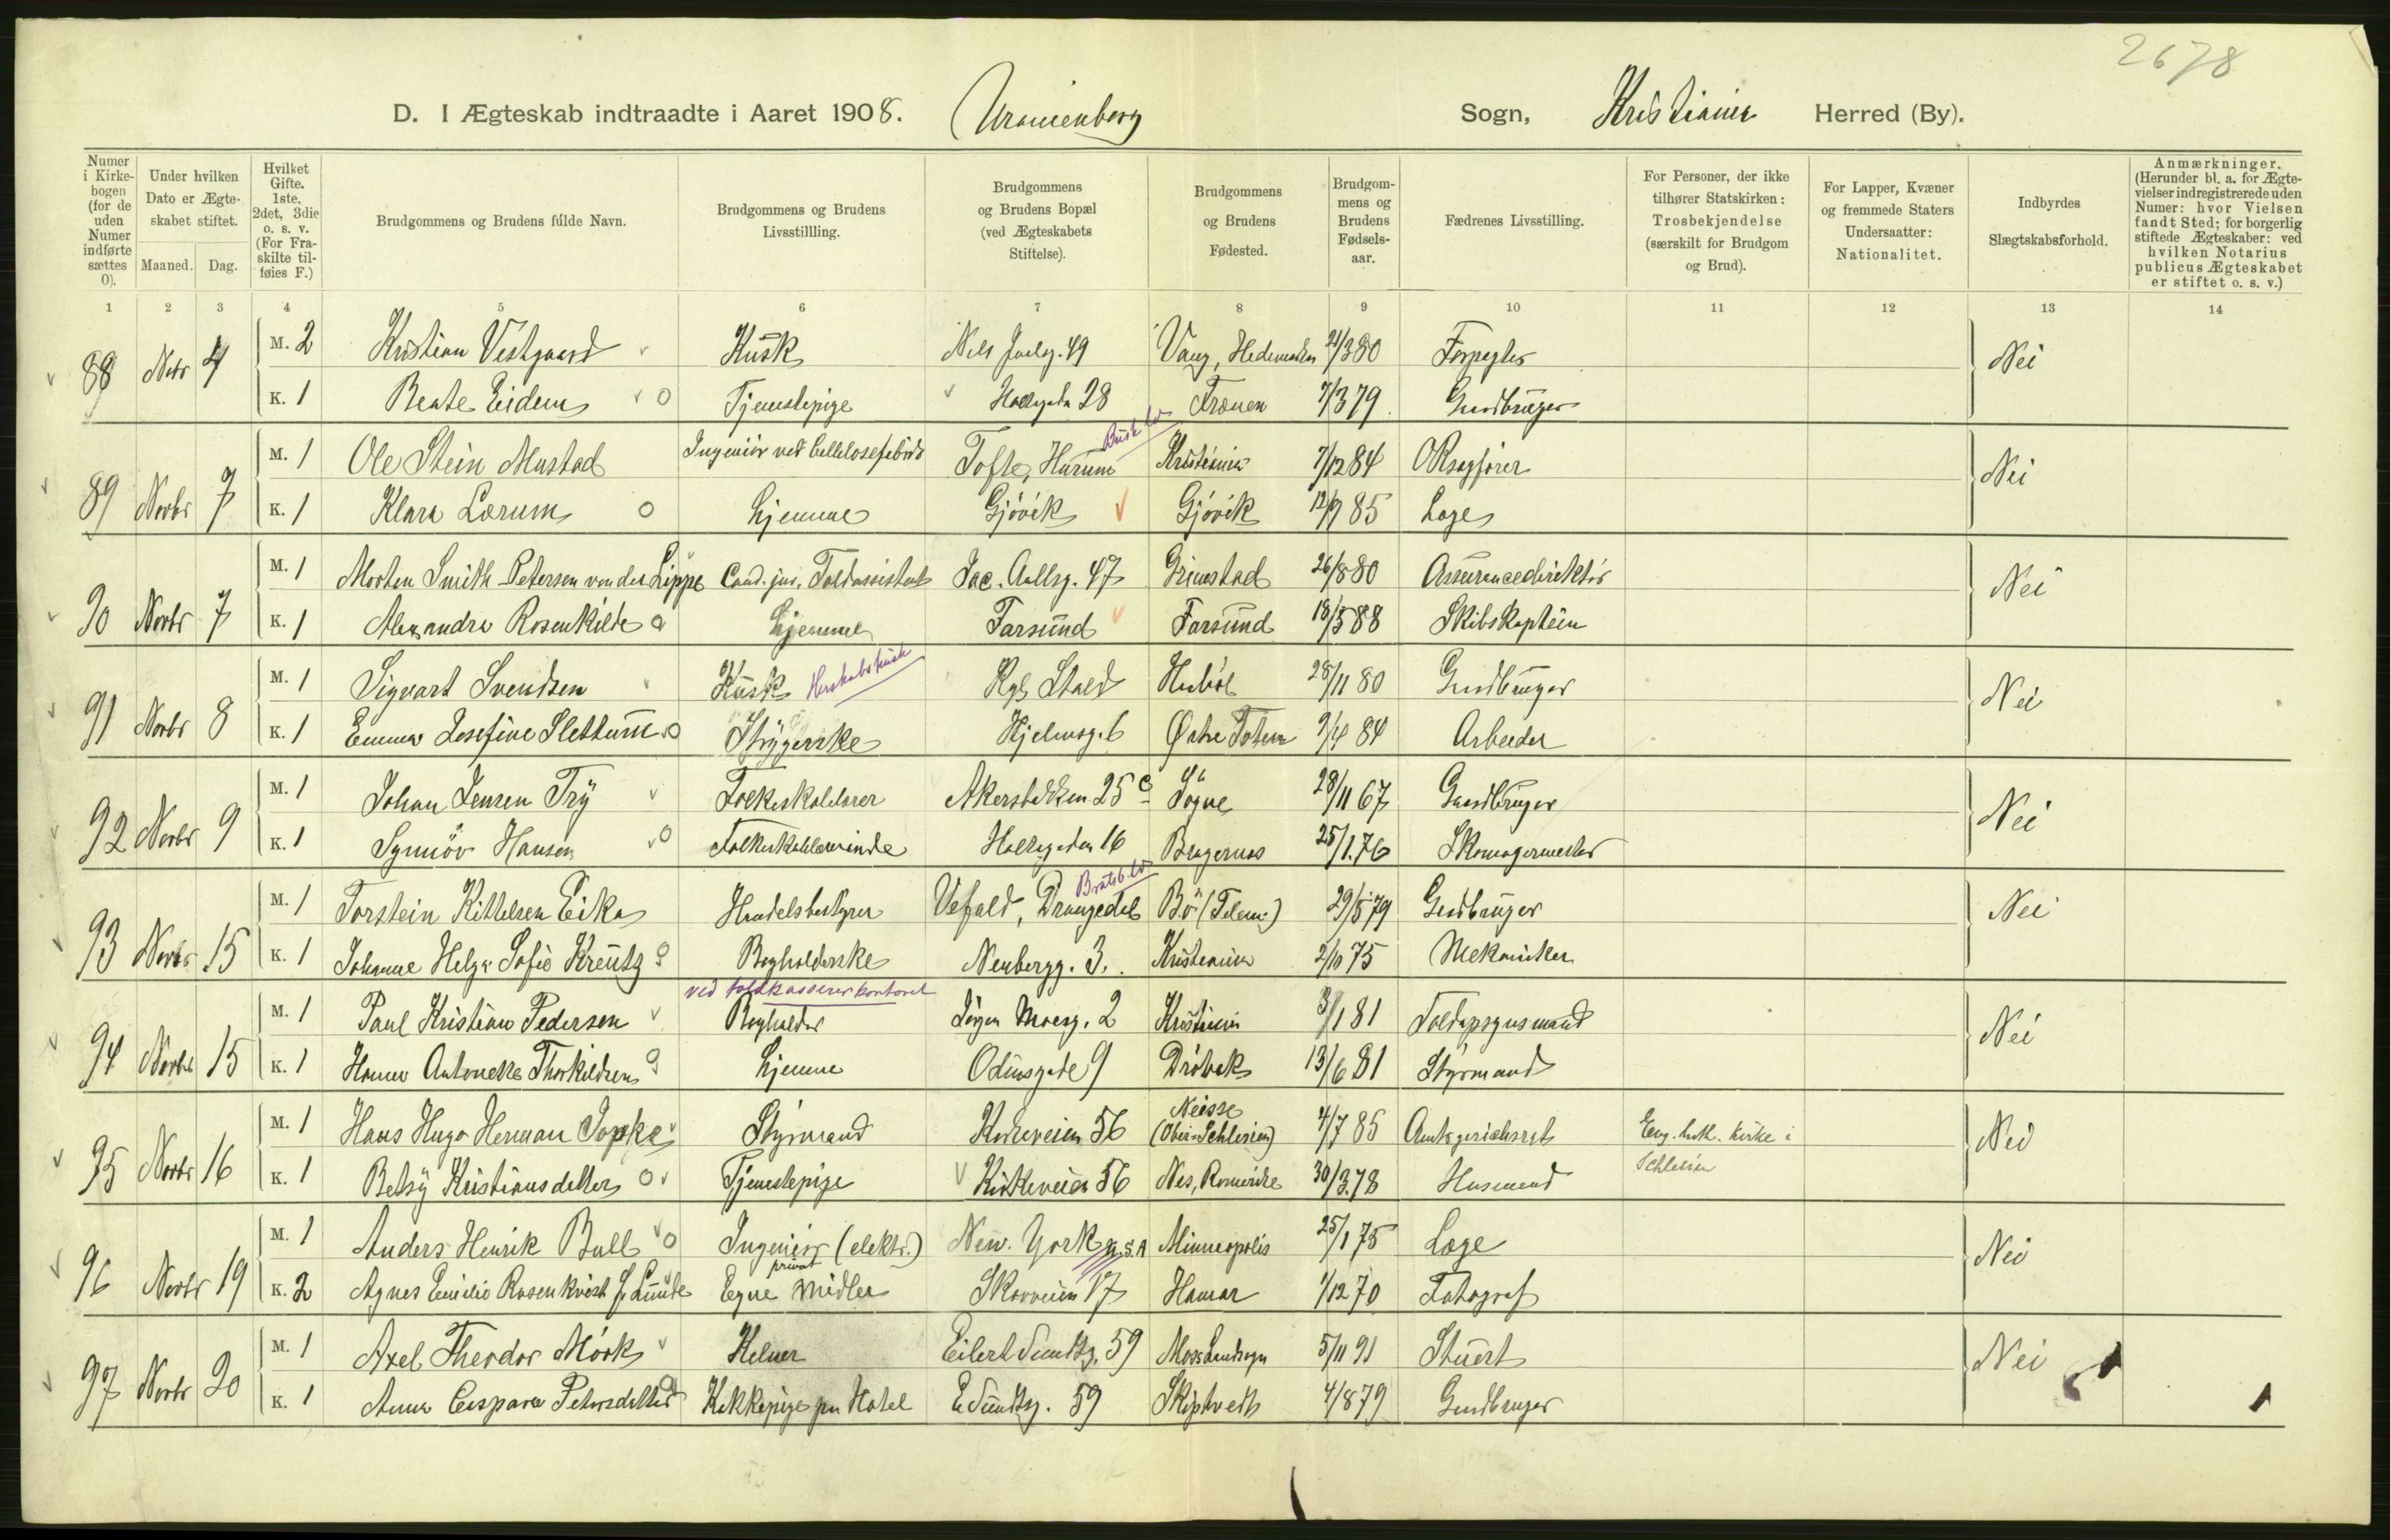 2678
D. I Ægteskab indtraadte i Aaret 1908. Uranienborg Sogn, Kristiania Herred (By).
Numer i Kirkebogen (for de uden Numer indførte sættes 0). Under hvilken Dato er Ægteskabet stiftet. Maaned. Dag. Hvilket Gifte. 1ste. 2det, 3die o. s. v. (For Fraskilte tilføies F.) Brudgommens og Brudens fulde Navn. Brudgommens og Brudens Livsstillling. Brudgommens og Brudens Bopæl (ved Ægteskabets Stiftelse). Brudgommens og Brudens Fødested. Brudgommens og Brudens Fødselsaar. Fædrenes Livsstilling. For Personer, der ikke tilhører Statskirken: Trosbekjendelse (særskilt for Brudgom og Brud). For Lapper, Kvæner og fremmede Staters Undersaatter: Nationalitet. Indbyrdes Slægtskabsforhold. Anmærkninger. (Herunder bl. a. for Ægtevielser indregistrerede uden Numer: hvor Vielsen fandt Sted; for borgerlig stiftede Ægteskaber: ved hvilken Notarius publicus Ægteskabet er stiftet o. s. v.)
1 2 3 4 5 6 7 8 9 10 11 12 13 14
88 Novbr 4 M. 2 Kristian Vestgaard Kusk Nels Juelsg. 49 Vang, Hedemarken 21/3 80 Forpagter Nei
K. 1 Beate Eidem o Tjenestepige Holtegadn 28 Tronen 7/3 79 Gaardbruger
Busk.
89 Novbr 7 M. 1 Ole Stein Mustad Ingeniör ved Cellulosefabrik Tofte, Hurum Kristiania 7/12 84 ORsagfører Nei
K. 1 Klara Lærum o hjemme Gjövik Gjövik 12/9 85 Læge
90 Novbr 7 M. 1 Morten Smith Petersen von der Lippe Cand. jur. Toldassistent Jac. Aallsg. 47 Grimstad 26/8 80 Assurancedirektör Nei
K. 1 Alexandra Rosenkilde o hjemme Farsund Farsund 18/5 88 Skibskaptein
91 Novbr 8 M. 1 Sigvart Svendsen Kusk Herskabskusk Kgl. Stald Hoböl 28/11 80 Gaardbruger Nei
K. 1 Emma Josefine Slettum o Strygerske Hjelmsg. 6 Østre Toten 9/4 84 Arbeider
92 Novbr 9 M. 1 Johan Jensen Try Folkeskolelærer Akersbakken 25 c Sögne 28/11 67 Gaardbruger Nei
K. 1 Synnöv Hansen o Folkeskolelærerinde Holtegaden 16 Bragernæs 25/1.76 Skomagermester
Bratsb.
93 Novbr 15 M. 1 Torstein Kittelsen Eika Handelsbestyrer Vefald, Drangedal Bö (Telem.) 29/5 79 Gaardbruger Nei
K. 1 Johanne Helga Sofie Kreutz o Bogholderske Neubergg. 3. Kristiania 2/10 75 Mekaniker
ved toldkassererkontoret
94 Novbr 15 M. 1 Paul Kristian Pedersen Bogholder Jörgen Moesg. 2 Kristiania 3/1 81 Toldopsynsmand Nei
K. 1 Hanna Antonette Thorkildsen o hjemme Odinsgade 9 Dröbak 13/6 81 Styrmand
95 Novbr 16 M. 1 Hans Hugo Herman Sopka Styrmand Kirkeveien 56 Neisse (Ober-Schlesien) 4/7 85 Amtsgerichtsrat Evg. luth. Kirke i Schlesien Nei
K. 1 Betsy Kristiansdatter o Tjenestepige Kirkeveien 56 Nes, Romerike 30/3.78 Husmand
96 Novbr 19 M. 1 Anders Henrik Bull o Ingeniör (elektr.) New York U.S.A Minneapolis 25/1 75 Læge Nei
K. 2 Agnes Emilie Rosenkvist f. Lunde Egne private Midler Skovveien 17 Hamar 1/12 70 Fotograf
97 Novbr 20 M. 1 Axel Theodor Mörk Kelner Eilert Sundtsg. 59 Moss Landsogn 5/11 91 Stuert Nei
K. 1 Anna Caspara Petersdatter o Kokkepige paa Hotel E. Sundtsg. 59 Skiptvedt 4/8 79 Gaardbruger